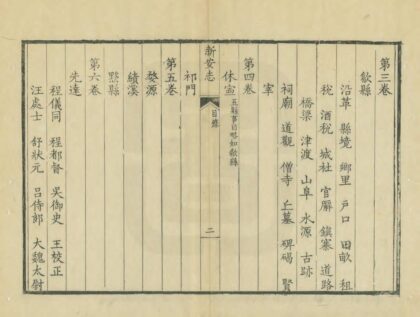 第三卷
歙縣
沿革 縣境 鄉里 戶口 田畝 租
稅 酒稅 城社 官廨 鎮寨 道路
橋梁 津渡 山阜 水源 古跡
祠廟 道觀 僧寺 丘墓 碑碣 賢
宰
第四卷
休寧
五縣事目略如歙縣
新安志
目錄
二
祁門
第五卷
婺源
績溪
黟縣
第六卷
先達
程儀同 程都督 吳御史 王校正
汪處士 舒狀元 呂侍郎 大魏太尉